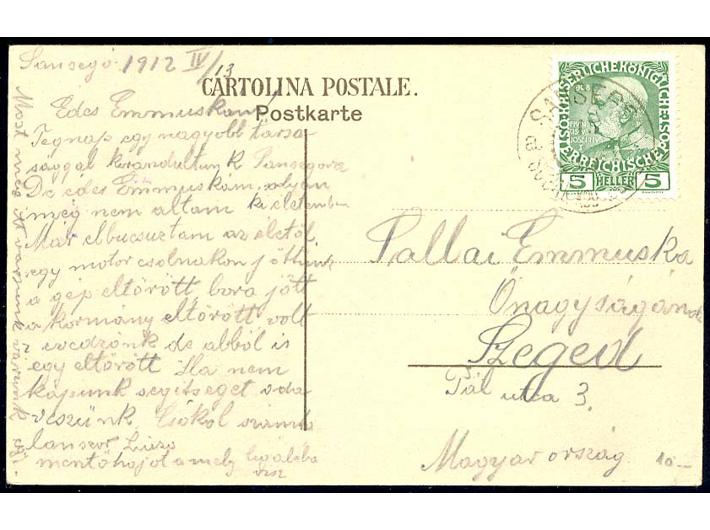 Sansego 1912 IV/13
CARTOLINA POSTALE.
Postkarte
Edes Emmuskam!
Tegnap egy nagyobb társa
sággal kirandultunk Sansegora
De édes Emmuskám, olyan
még nem altam ki életemben
Mar elbucsuztam az élettől,
egy motor csolnakon jöttünk
a gép eltörött bora jött
a kormany eltörött volt
2 evedzönk de abból is
egy eltörött Ha nem
kapunk segitseget oda
veszünk. Csókol szám
lanszor Liszo
mentőhajot a mely legalább
visz
Most még itt varjunk
KAISERLICHE KÖNIGLICHE
ÖSTERREICHISCHE
5 HELLER 5
SANSEGO
Pallai Emmuska
Őnagyságának
Szeged
Pál utca 3.
Magyarország
10-